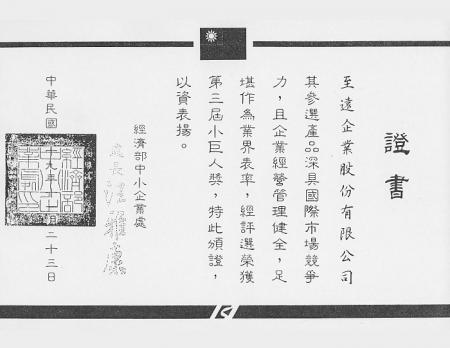 證書
至遠企業股份有限公司
其參選產品深具國際市場競爭
力，且企業經營管理健全，足
堪作為業界表率，經評選榮獲
第三屆小巨人獎，特此頒證，
以資表揚。
經濟部中小企業處
處長
中華民國
十九年十一月二十三日